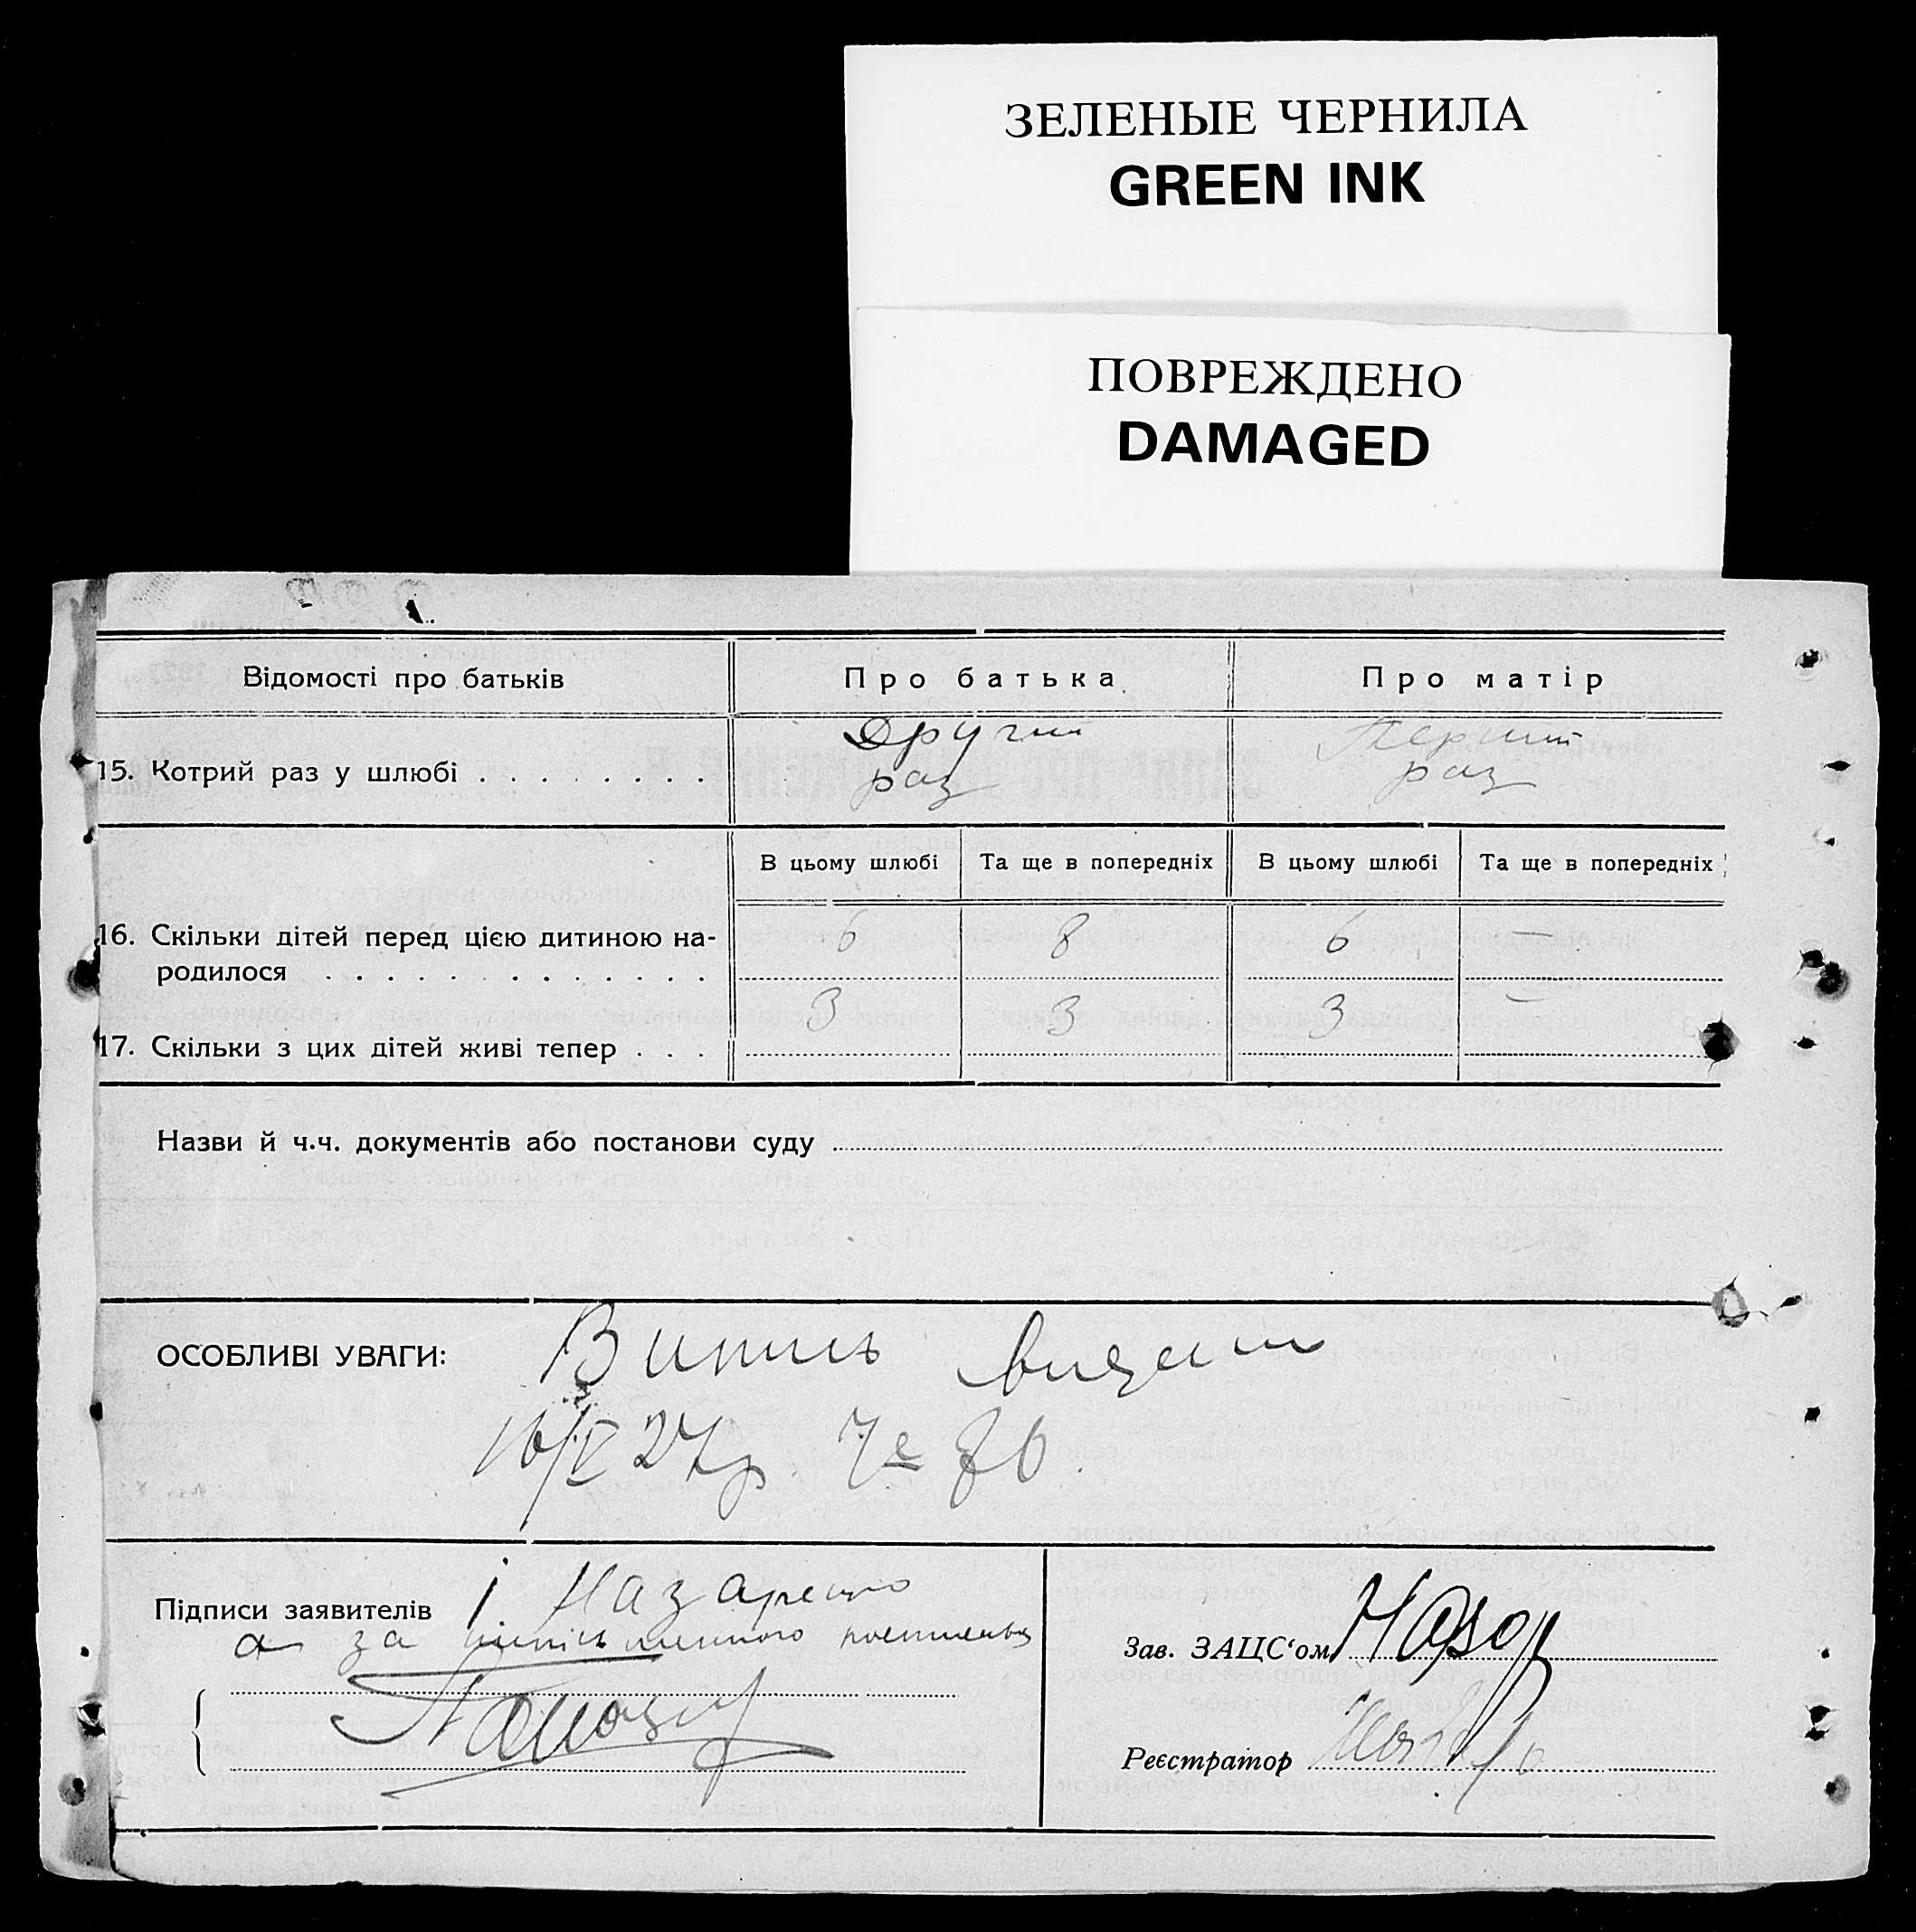 ЗЕЛЕНЫЕ ЧЕРНИЛА
GREEN INK
ПОВРЕЖДЕНО
DAMAGED
Відомості про батьків Про батька Про матір
15. Котрий раз у шлюбі . . . . . . . . Другий раз Перший раз
В цьому шлюбі Та ще в попередніх В цьому шлюбі Та ще в попередніх
16. Скільки дітей перед цією дитиною на- 6 8 6 —
родилося . . . . . . . . . . . . .
17. Скільки з цих дітей живі тепер . . . 3 3 3 —
Назви й ч.ч. документів або постанови суду
ОСОБЛИВІ УВАГИ: Витяг
16/V 27р. 86
Підписи заявителів І. Назаренко
а за
Зав. ЗАЦС‘ом
Реєстратор